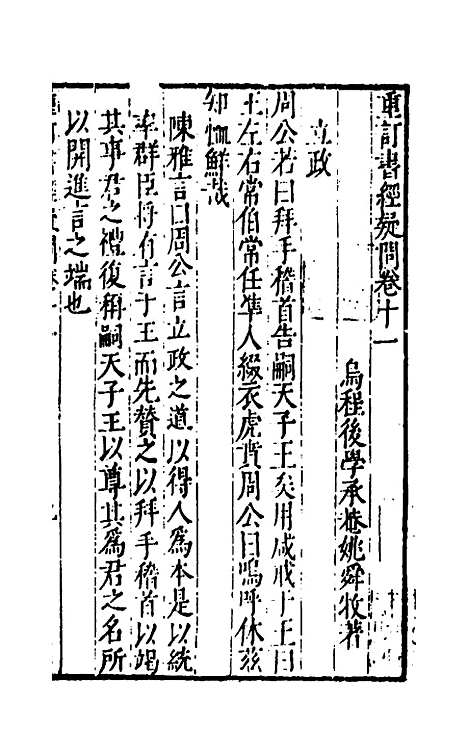 重訂書經疑問卷十一
烏程後學承菴姚舜牧著
立政
周公若曰拜手稽首告嗣天子王矣用咸戒于王曰
王左右常伯常任準人綴衣虎賁周公曰嗚呼休茲
知恤鮮哉
陳雅言曰周公言立政之道以得人爲本是以統
率群臣將有言于王而先贊之以拜手稽首以竭
其事君之禮復稱嗣天子王以尊其爲君之名所
以開進言之端也